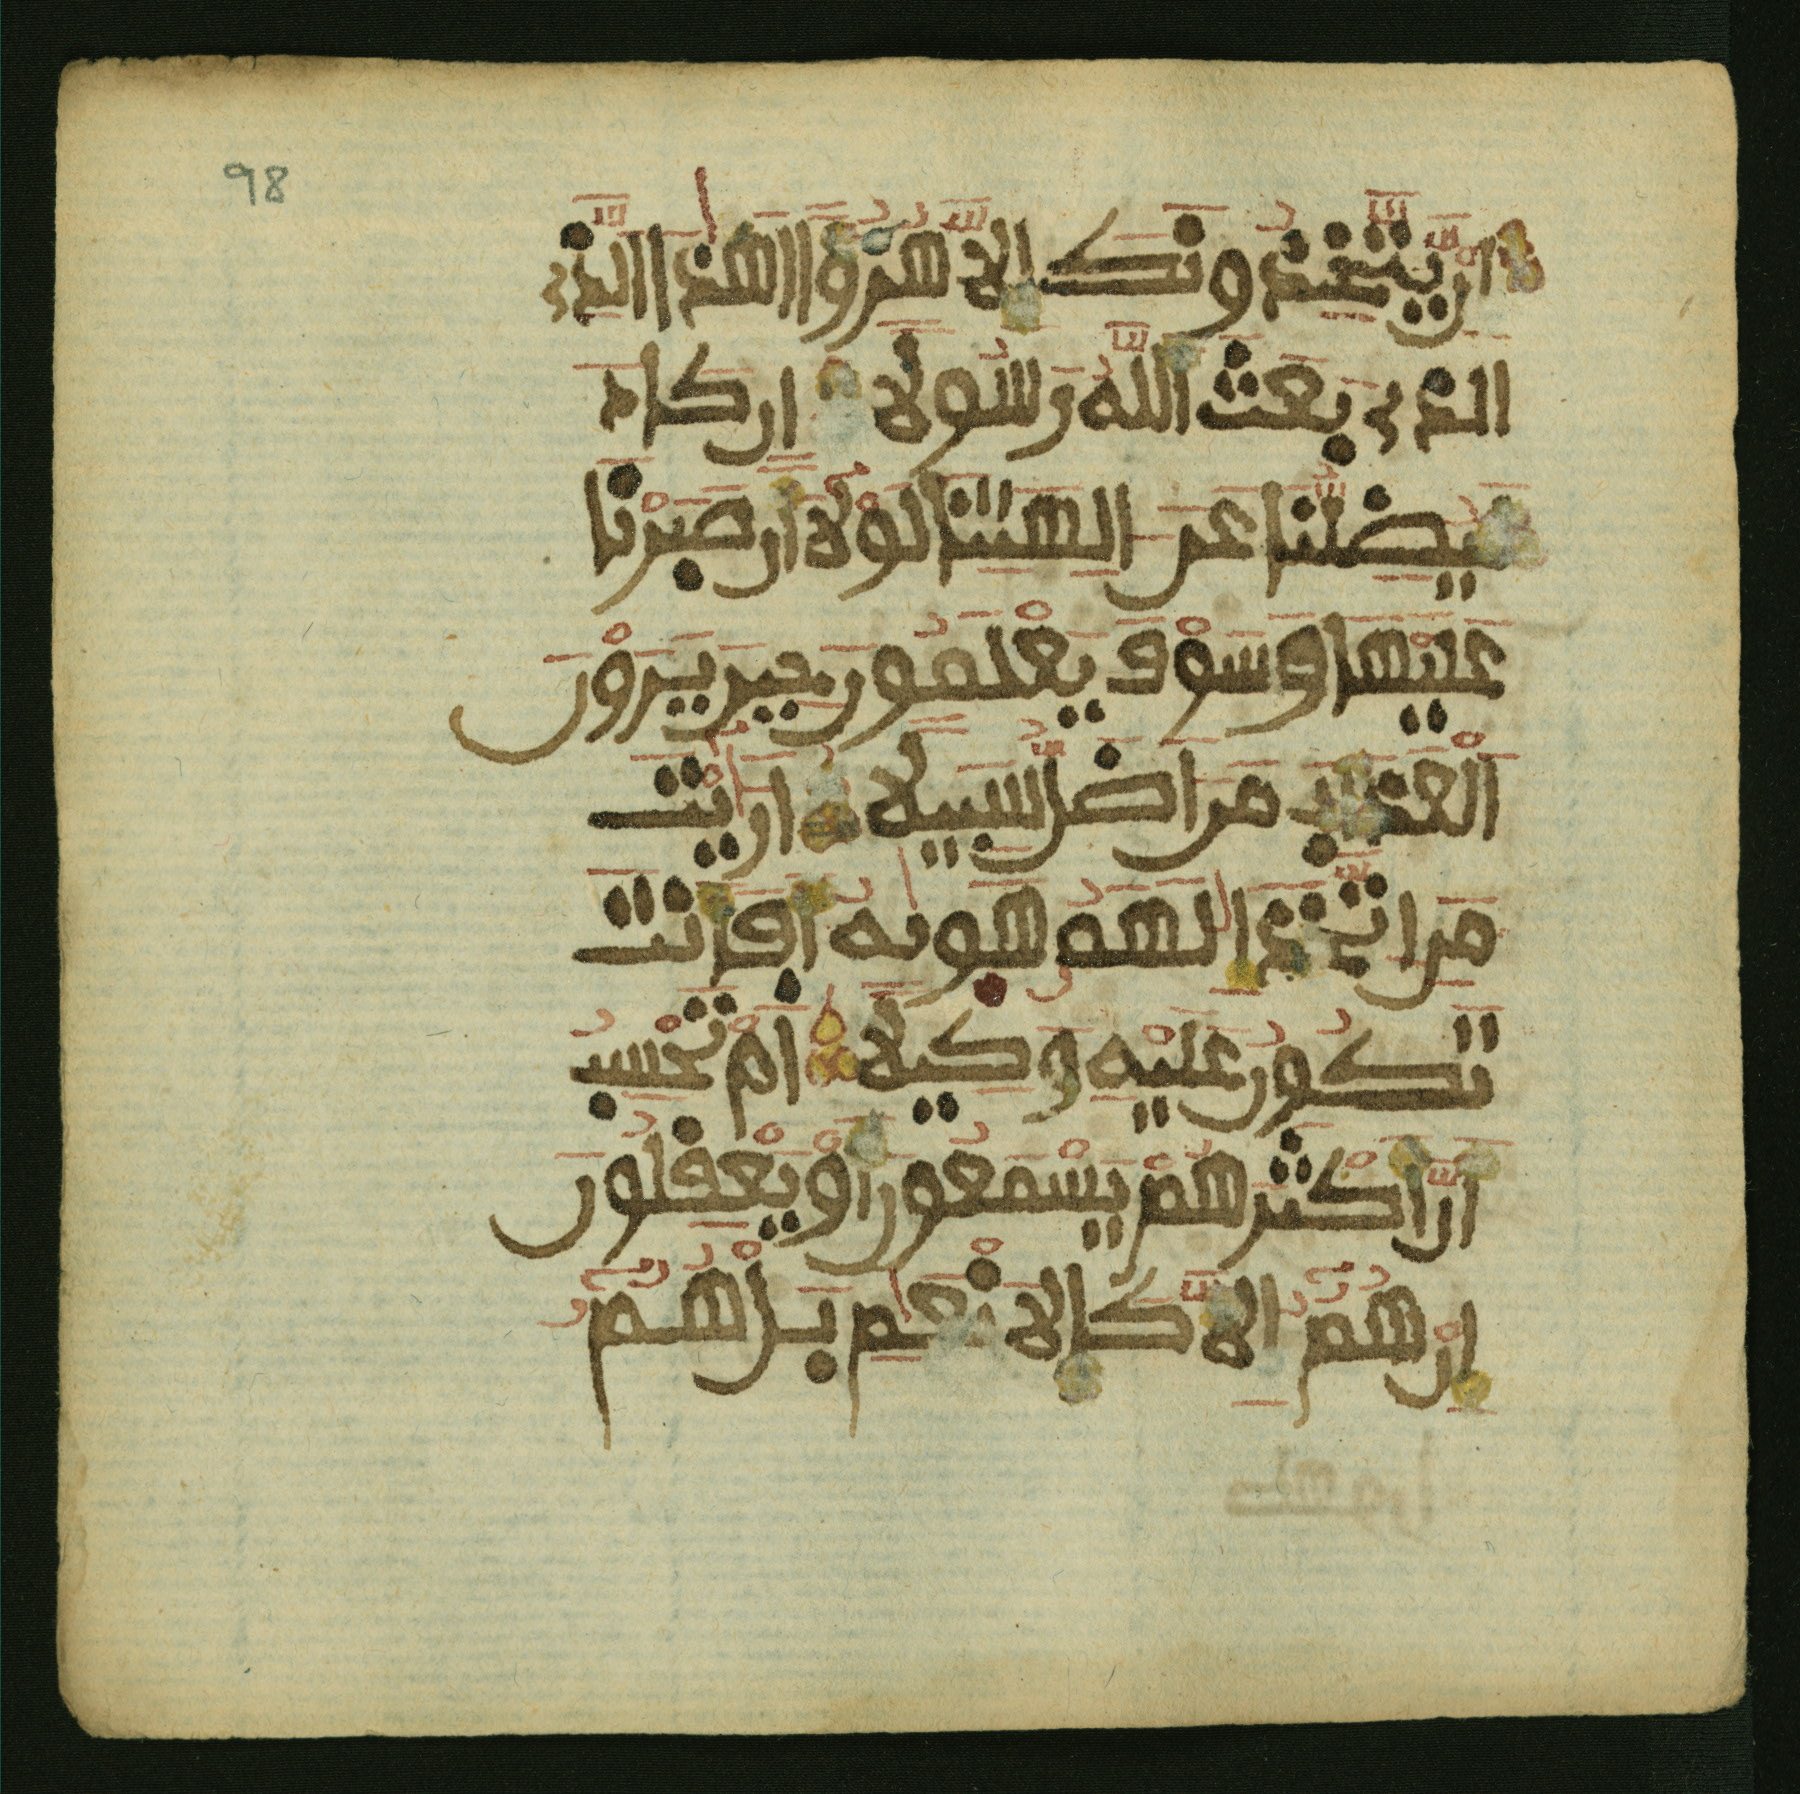 98
ان يتخذونك الا هزوا اهذا الذي
الذي بعث الله رسولا ان كاد
ليضلنا عن الهتنا لولا ان صبرنا
عليها وسوف يعلمون حين يرون
العذاب من اضل سبيلا اريت
من اتخذ الهه هويه افانت
تكون عليه وكيلا ام تحسب
ان اكثرهم يسمعون او يعقلون
ان هم الا كالانعم بل هم